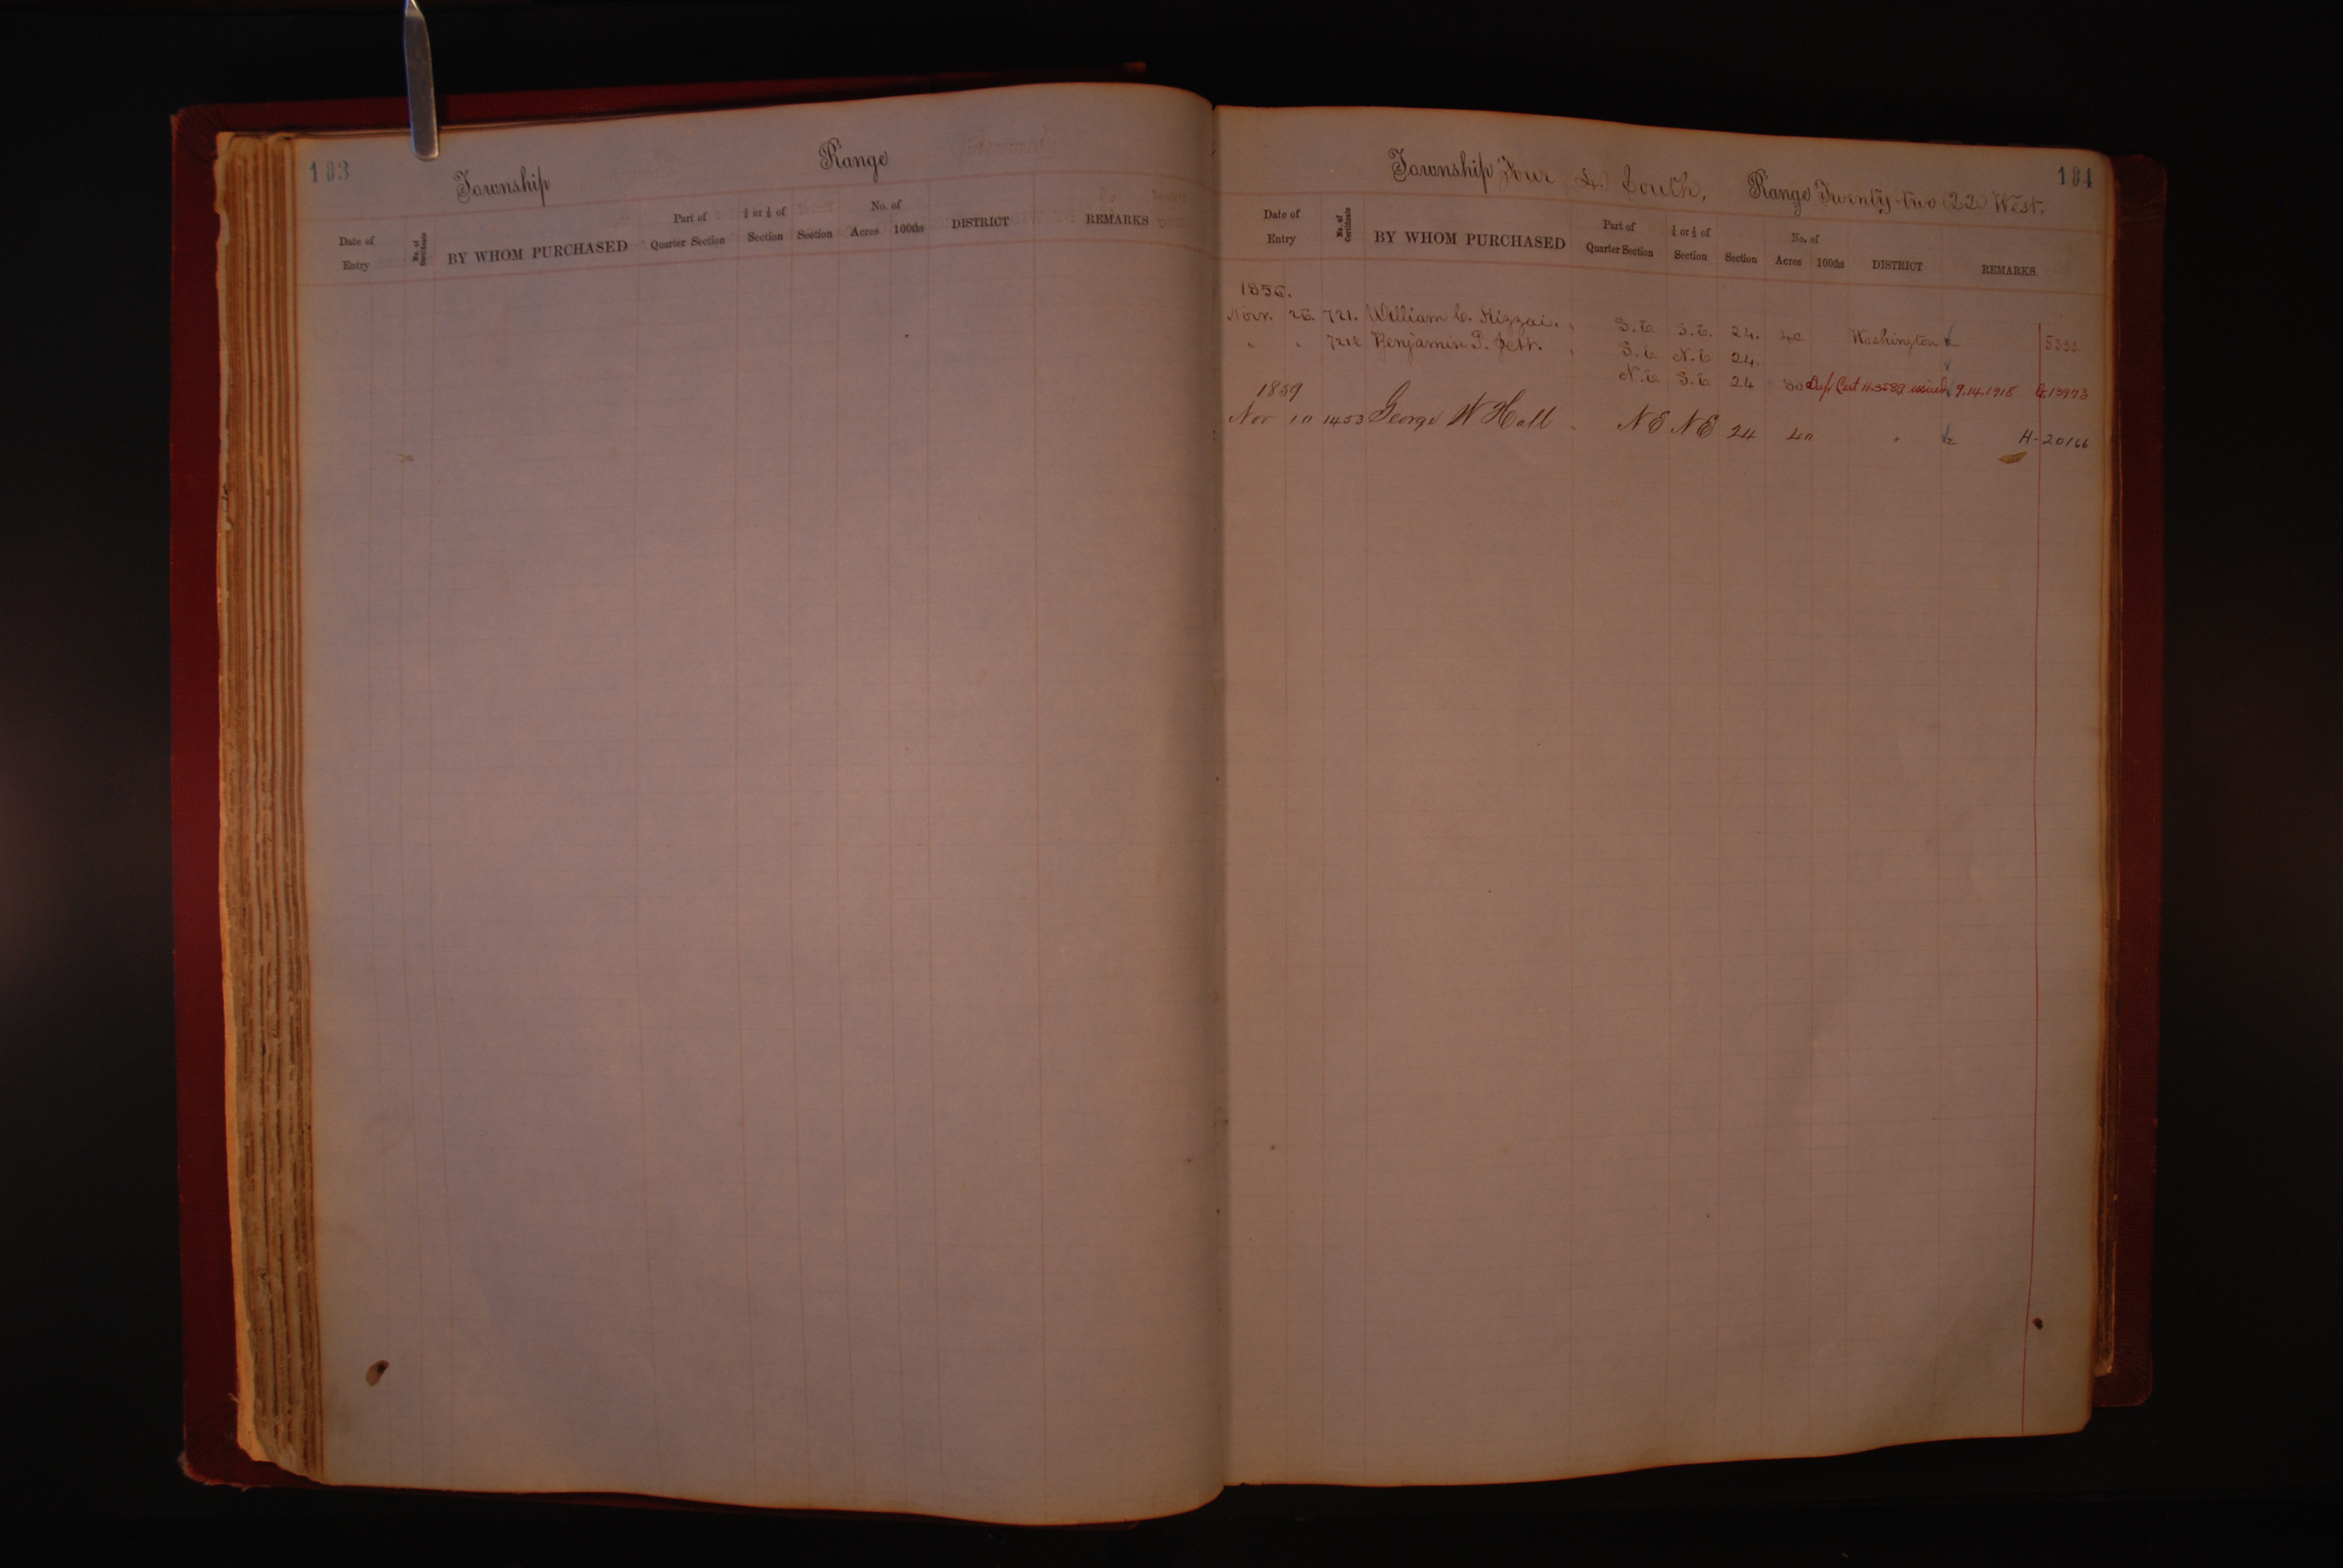 103
Township Range
Date of Entry No. of Certificate BY WHOM PURCHASED Part of Quarter Section ½ or ¼ of Section Section No. of Acres 100ths DISTRICT REMARKS
104
Township Four (4) South, Range Twenty-two (22) West.
Date of Entry No. of Certificate BY WHOM PURCHASED Part of Quarter Section ½ or ¼ of Section Section No. of Acres 100ths DISTRICT REMARKS
1856.
Nov. 26. 721. William C. S.E S.E. 24. 40 Washington
" " Benjamin P. Jett. S.E N.E 24.
N.E S.E 24 80 Dup. Cert issued 9.14.1918 G.13973
1859
Nov 10 1453 George W Hall NE NE 24 40 " H-20166